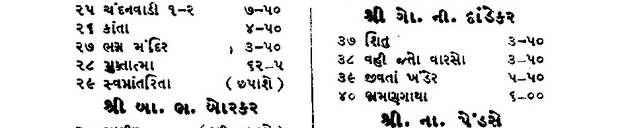 ૨૫ ચંદનવાડી ૧-૨ ૭-૫૦
૨૬ કાંતા ૪-૫૦
૨૭ ભગ્ન મંદિર ૩-૫૦
૨૮ મુક્તાત્મા ૬૨-૫
૨૯ સ્વમાંતરિતા ( છપાશે )
શ્રી બા. ભ. બોરકર
શ્રી ગો. ની. દાંડેકર
૩૭ શિતુ ૩-૫૦
૩૮ વહી જતો વારસો ૩-૫૦
૩૯ જીવતાં ખંડેર ૫-૫૦
૪૦ ભ્રમણગાથા ૬-૦૦
શ્રી. ના. પેંડસે